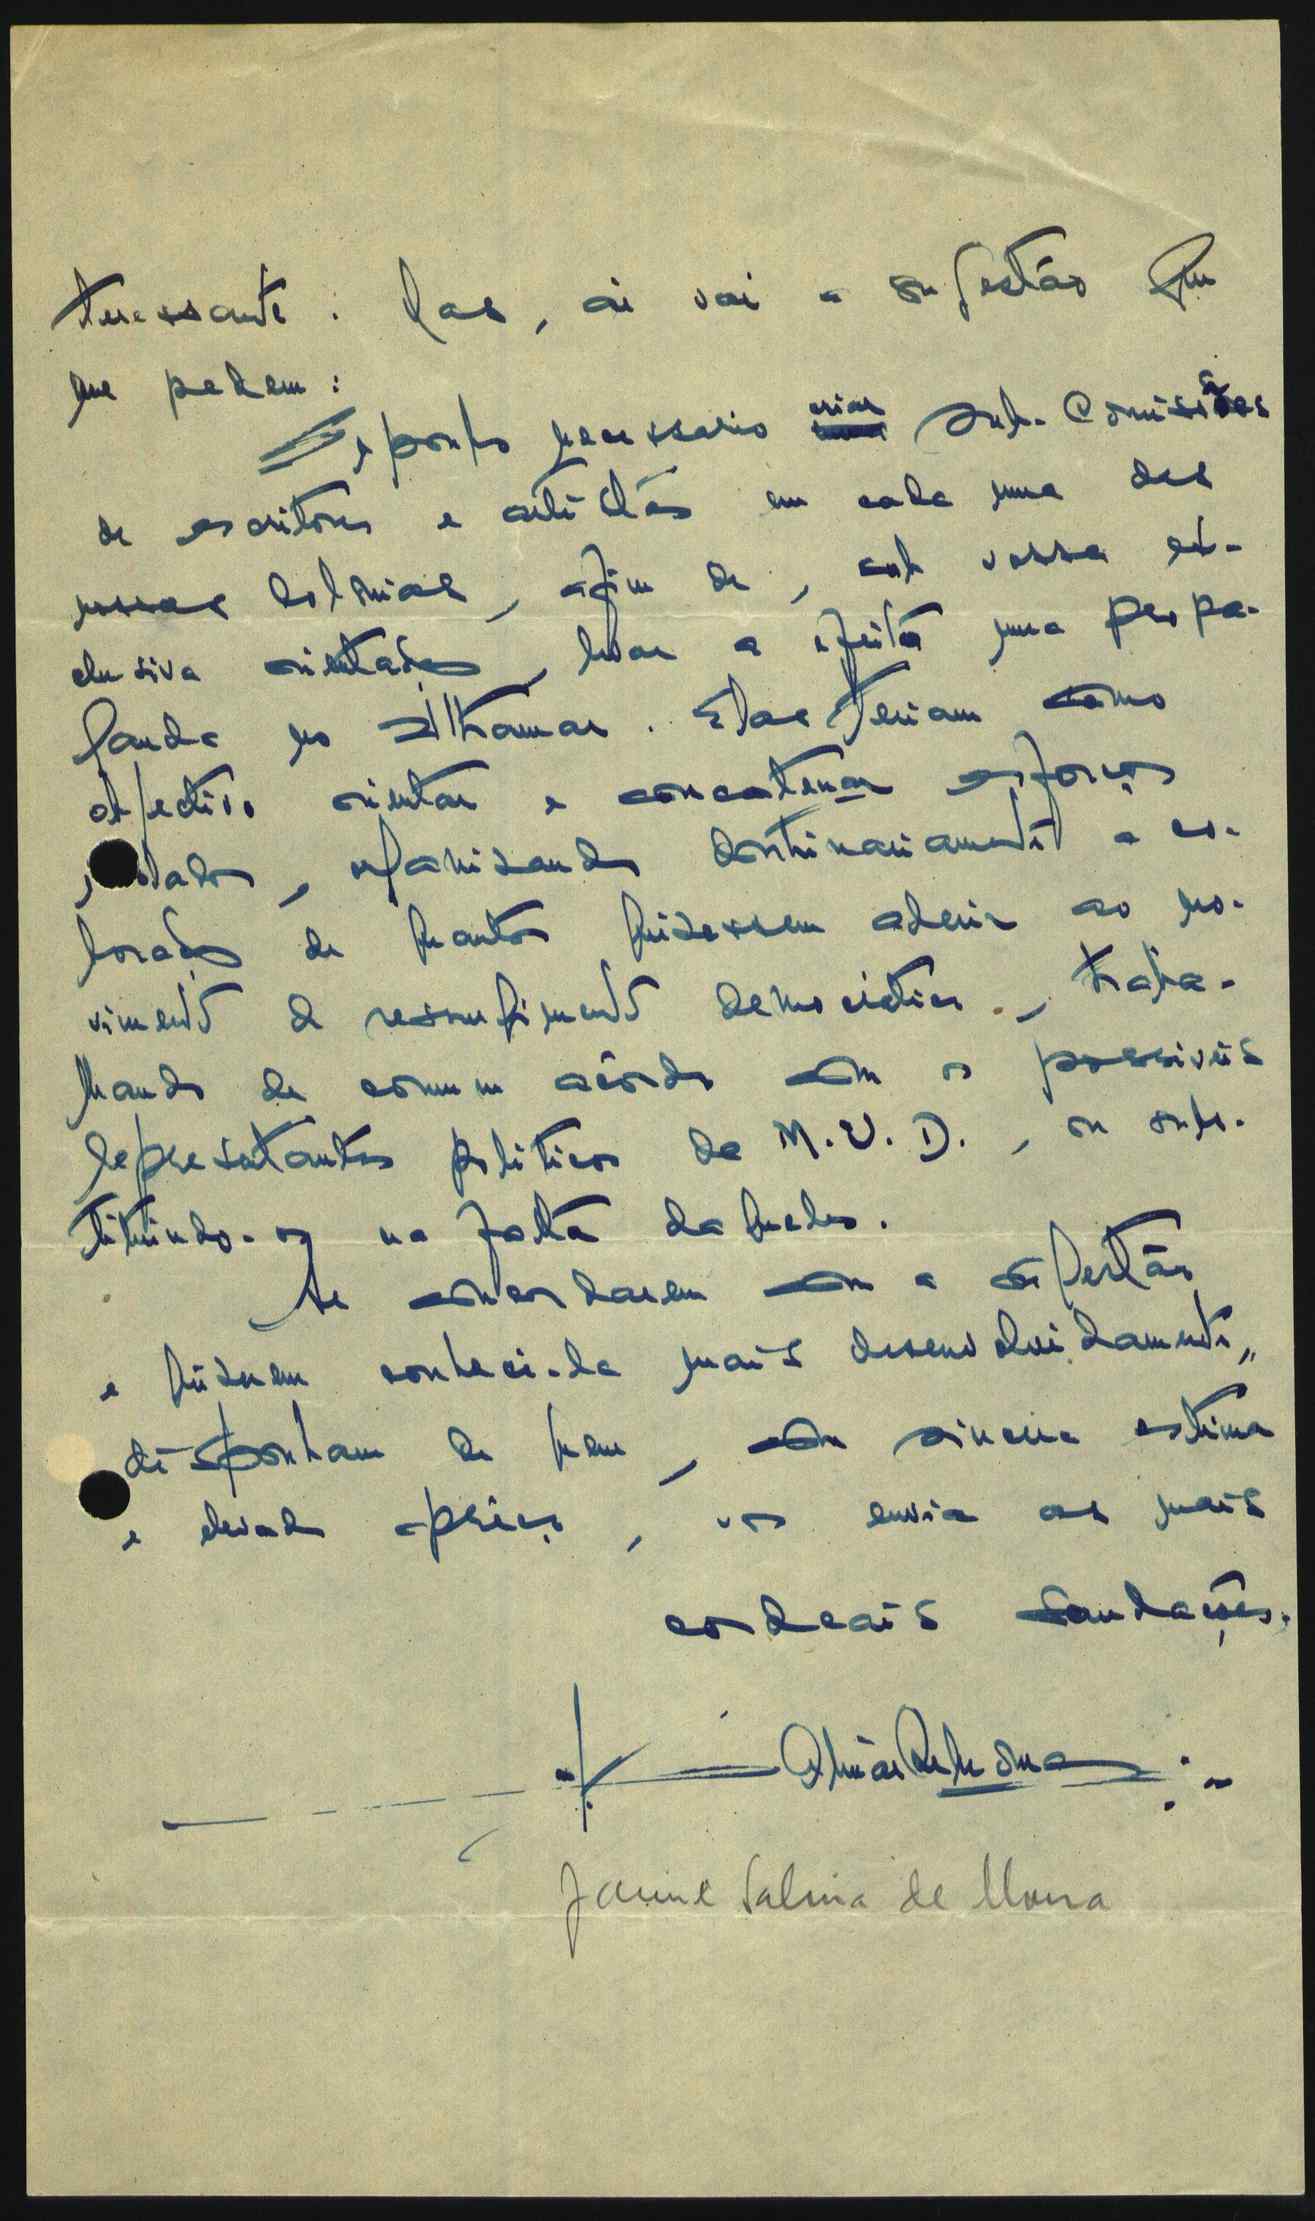 teressante: Mas, aí vai a sugestão que
me pedem:
Suponho necessario criar Sub-Comissões
de escritores e artistas em cada uma das
nossas Colonias, afim de, sob vossa ex-
clusiva orientação, levar a efeito uma propa-
ganda no Ultramar. Elas teriam como
objectivo orientar e concatenar esforços
isolados, organisando a co-
boração de quantos quisessem aderir ao mo-
vimento de ressurgimento democratico, traba-
lhando de comum acôrdo com os possiveis
representantes politicos do M.U.D., ou subs-
tituindo-os na falta daqueles.
Se concordarem com a sugestão,
e quiserem conhece-la mais desenvolvidamente,
disponham de quem, com sincera estima
e elevado apreço, vos envia as mais
cordeais saudações.
Jaime Salvia de Moura